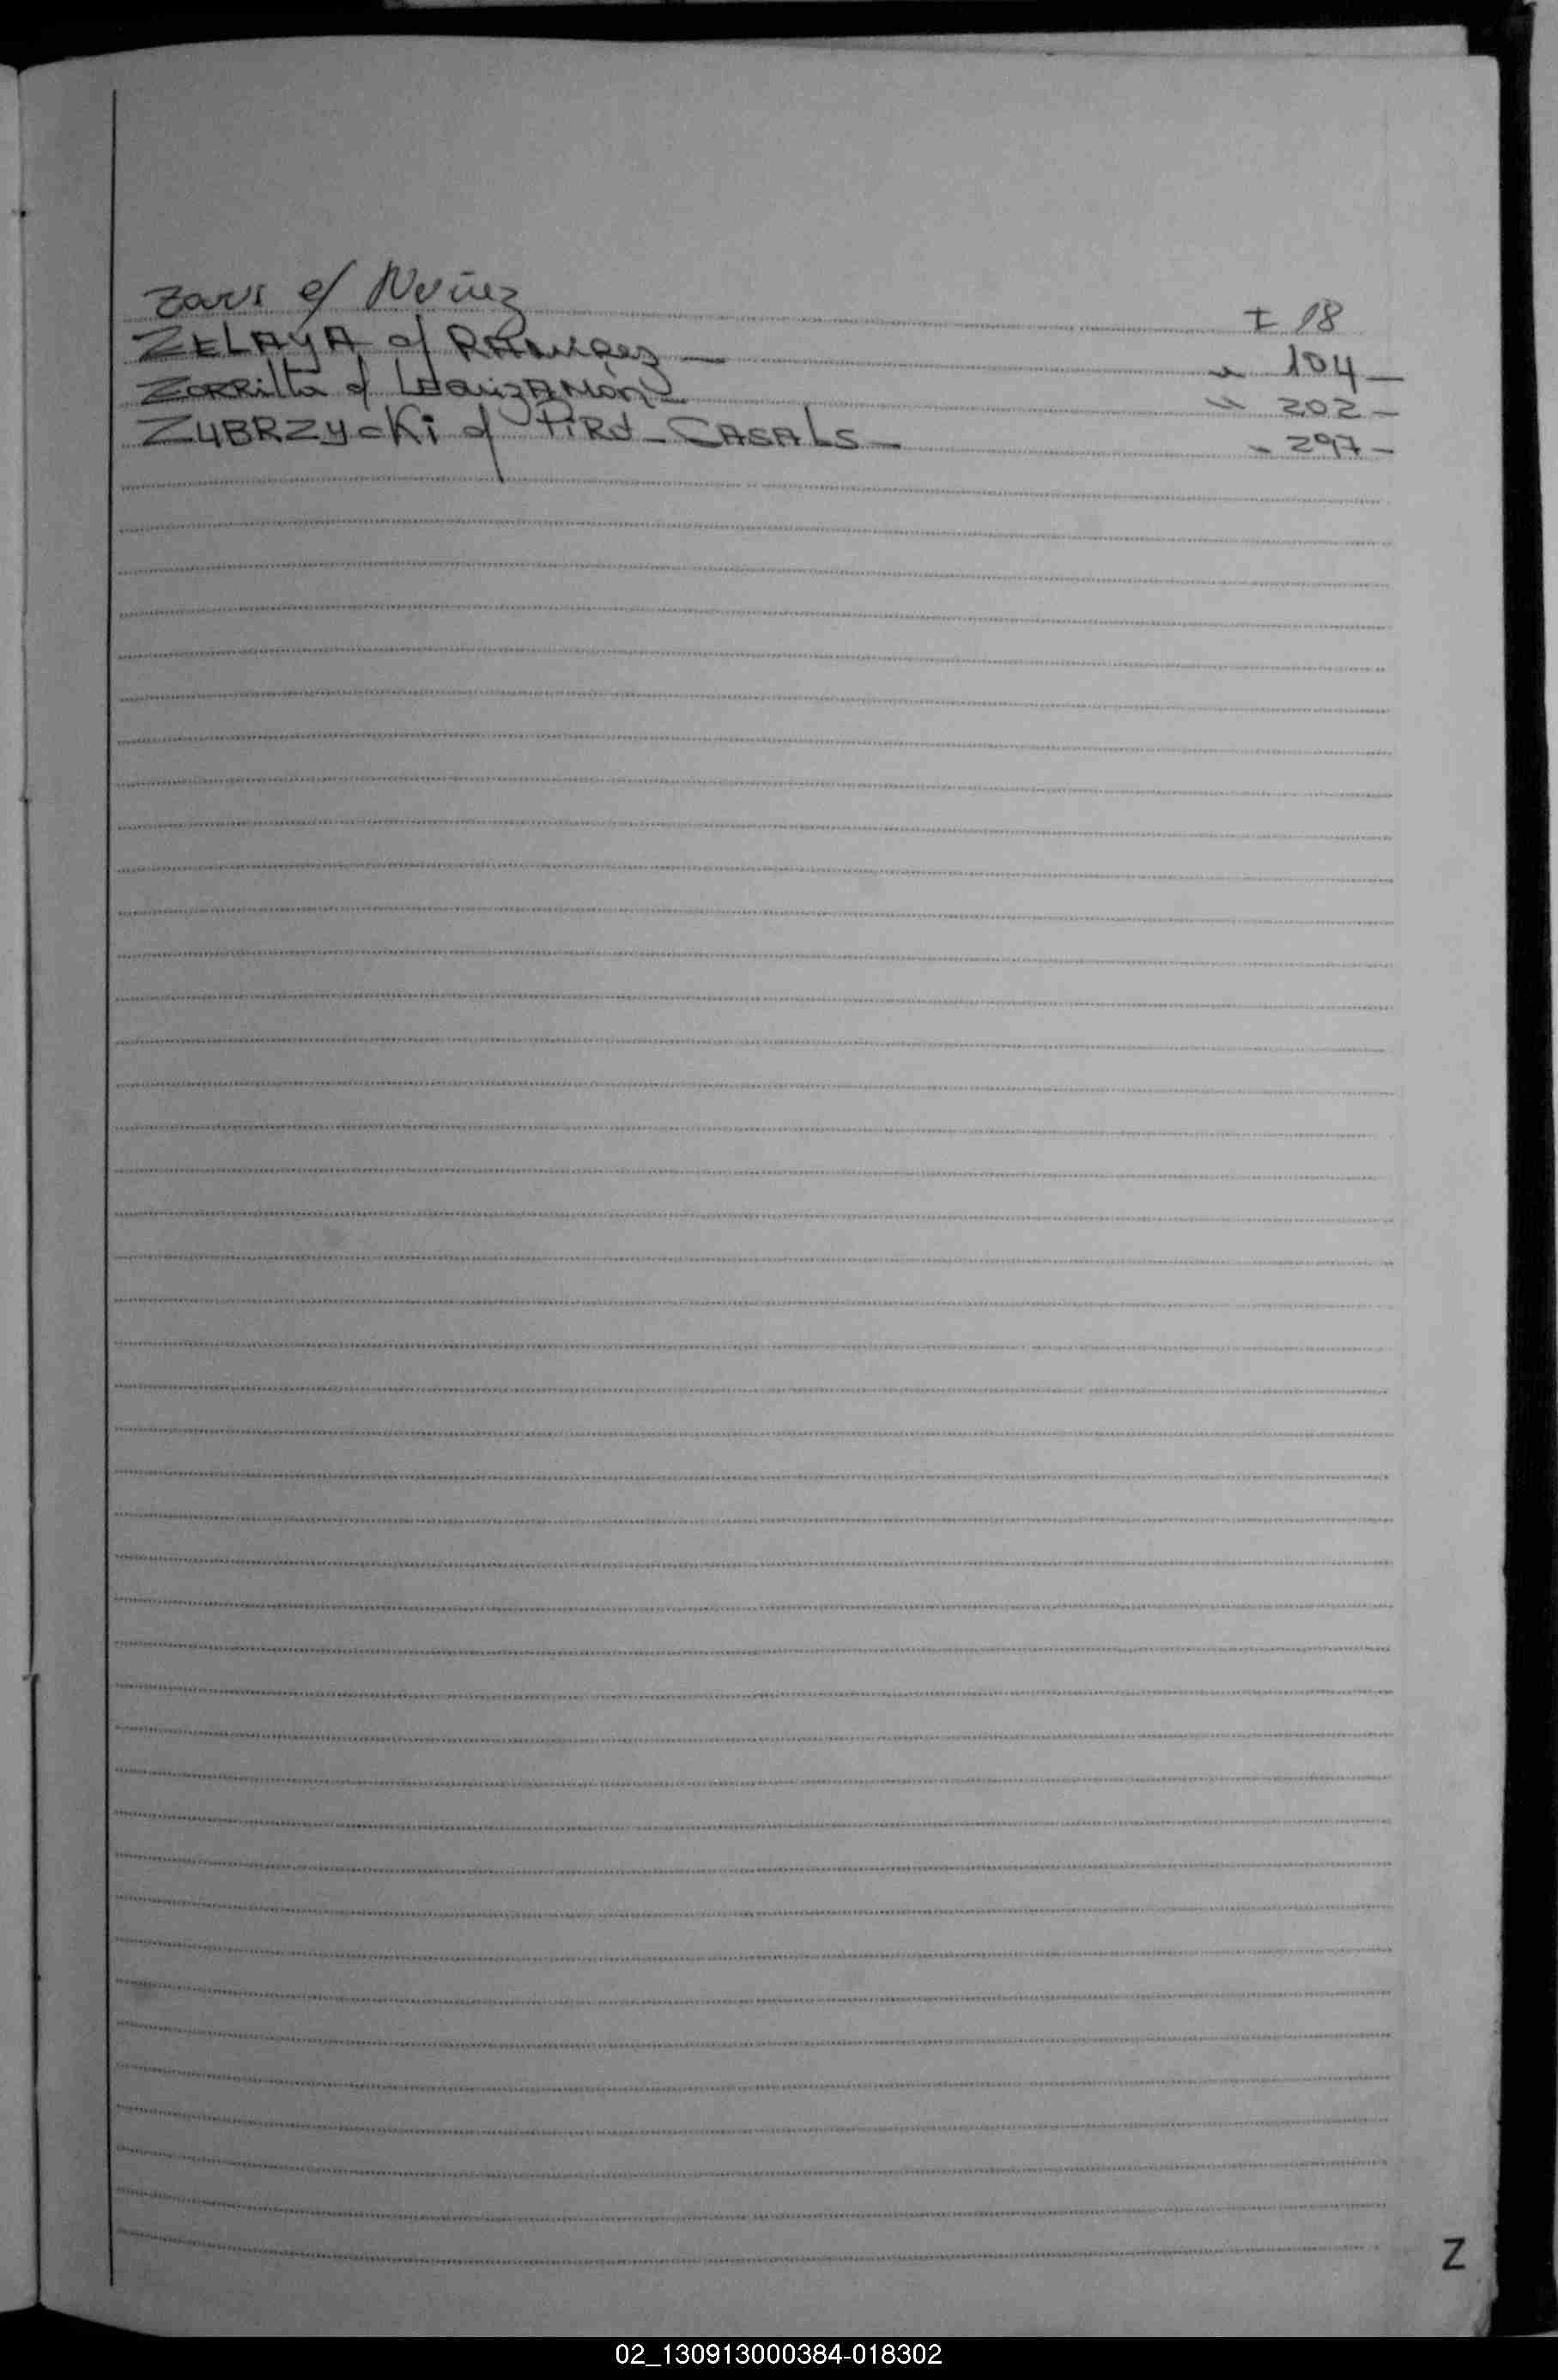 Zaur c/ Nuñez I 18
ZELAYA c/ RAMIREZ — " 104 —
ZORRILLA c/ " 202 —
ZUBRZYCKI c/ PIRÓ - CASALS — " 297 —
Z
02_130913000384-018302